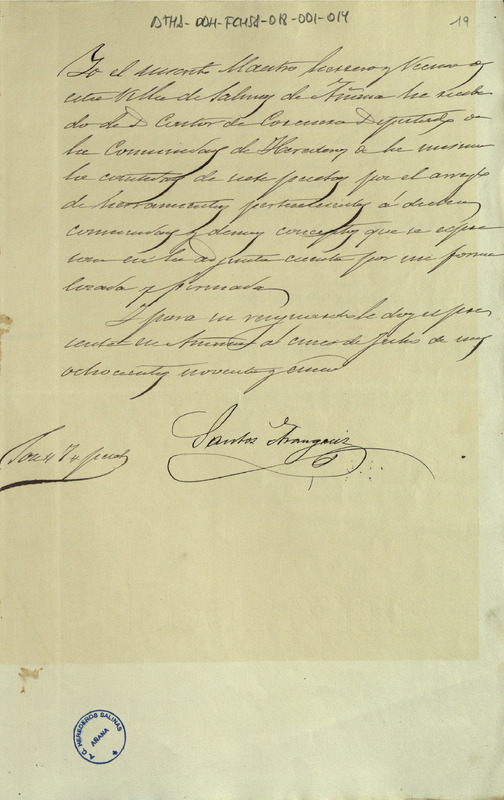 ATHA-DDH-FCHSA-018-001-014
19
Yo el suscrito Maestro herrero y Vecino de
esta Villa de Salinas de Añana he recibi
do de D. Cantor de Corcuera Diputado de
la Comunidad de Herederos de la misma
la cantidad de siete pesetas por el arreglo
de herramientas pertenecientes á dicha
comunidad y demas conceptos que se espre
san en la adjunta cuenta por mi forma
lizada y firmada
Y para su resguardo le doy el pre
sente en Añana á cinco de Julio de mil
ochocientos noventa y cinco
Santos Frangoiz
Son 7 pesetas
A.C. HEREDEROS SALINAS
AÑANA